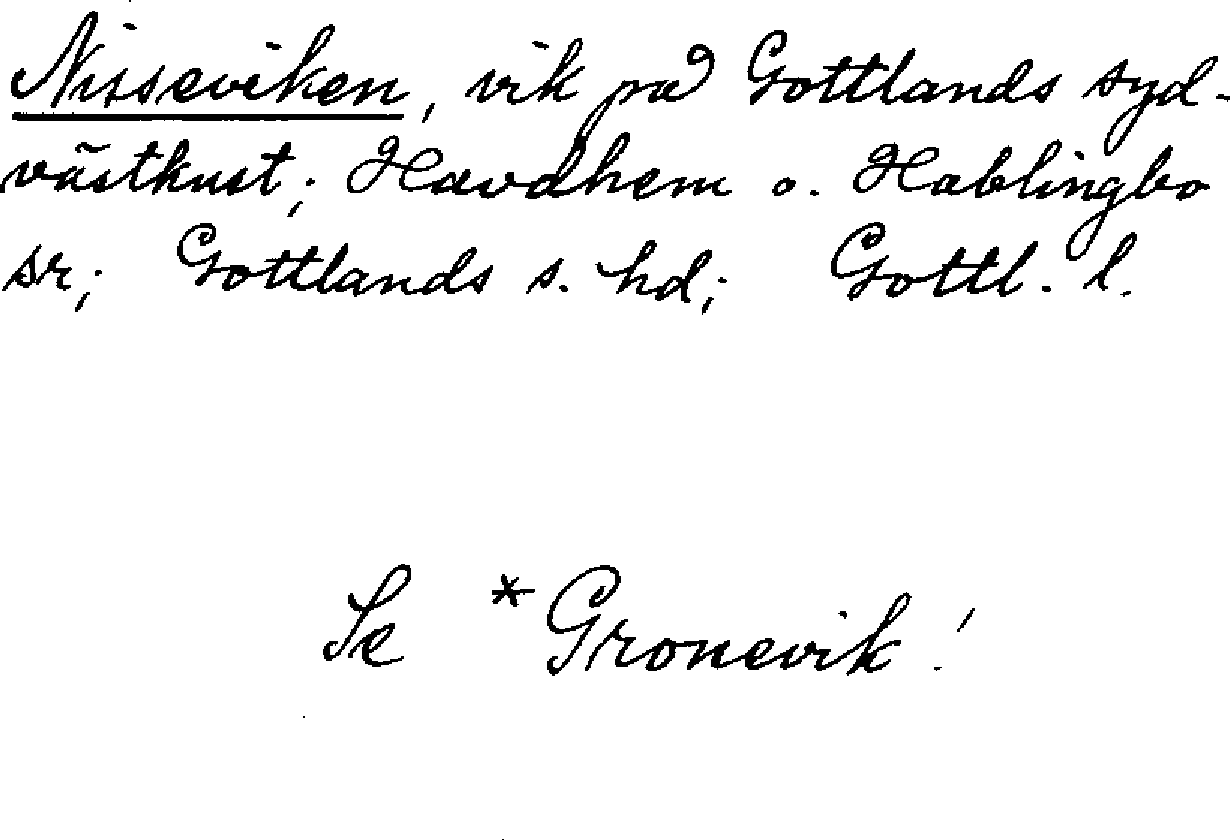 Nisseviken, vik på Gottlands syd-
västkust; Havdhem o. Hablingbo
sr; Gottlands s. hd; Gottl. l.
Se *Gronevik!